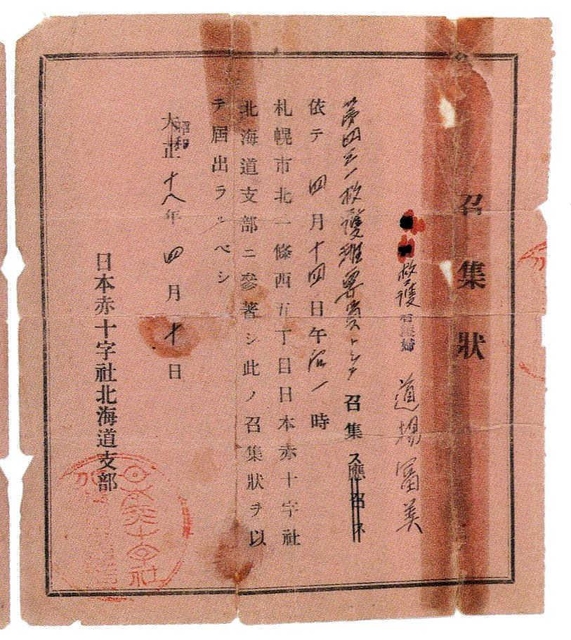 召集狀
救護看護婦 道場冨美
第四三一救護班要員トシテ召集ス應召ス
依テ四月十四日午后一時
札幌市北一條西五丁目日本赤十字社
北海道支部ニ參著シ此ノ召集狀ヲ以
テ屆出ラルベシ
大正昭和十八年四月十日
日本赤十字社北海道支部